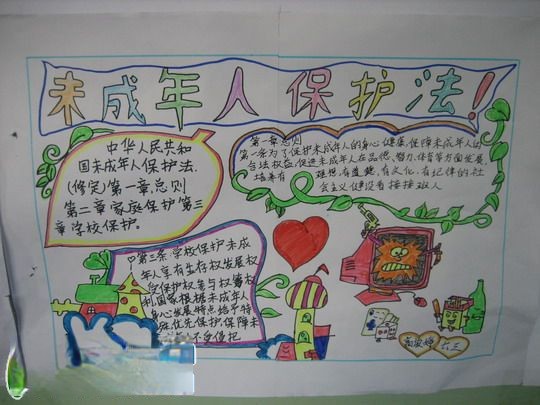 未成年人保护法!
中华人民共和
国未成年人保护法.
(修定)第一章总则
第二章家庭保护第三
章学校保护。
第一章总则
第一条为了保护未成年人的身心健康,保障未成年人的
合法权益,促进未成年人在品德、智力、体育等方面发展,
培养有理想,有道德,有文化,有纪律的社
会主义建设者接接班人
第三条学校保护未成
年人享有生存权发展权
受保护权参与权等权
利国家根据未成年人
身心发展特点给予特
优先保护保障未
不受侵犯
六三